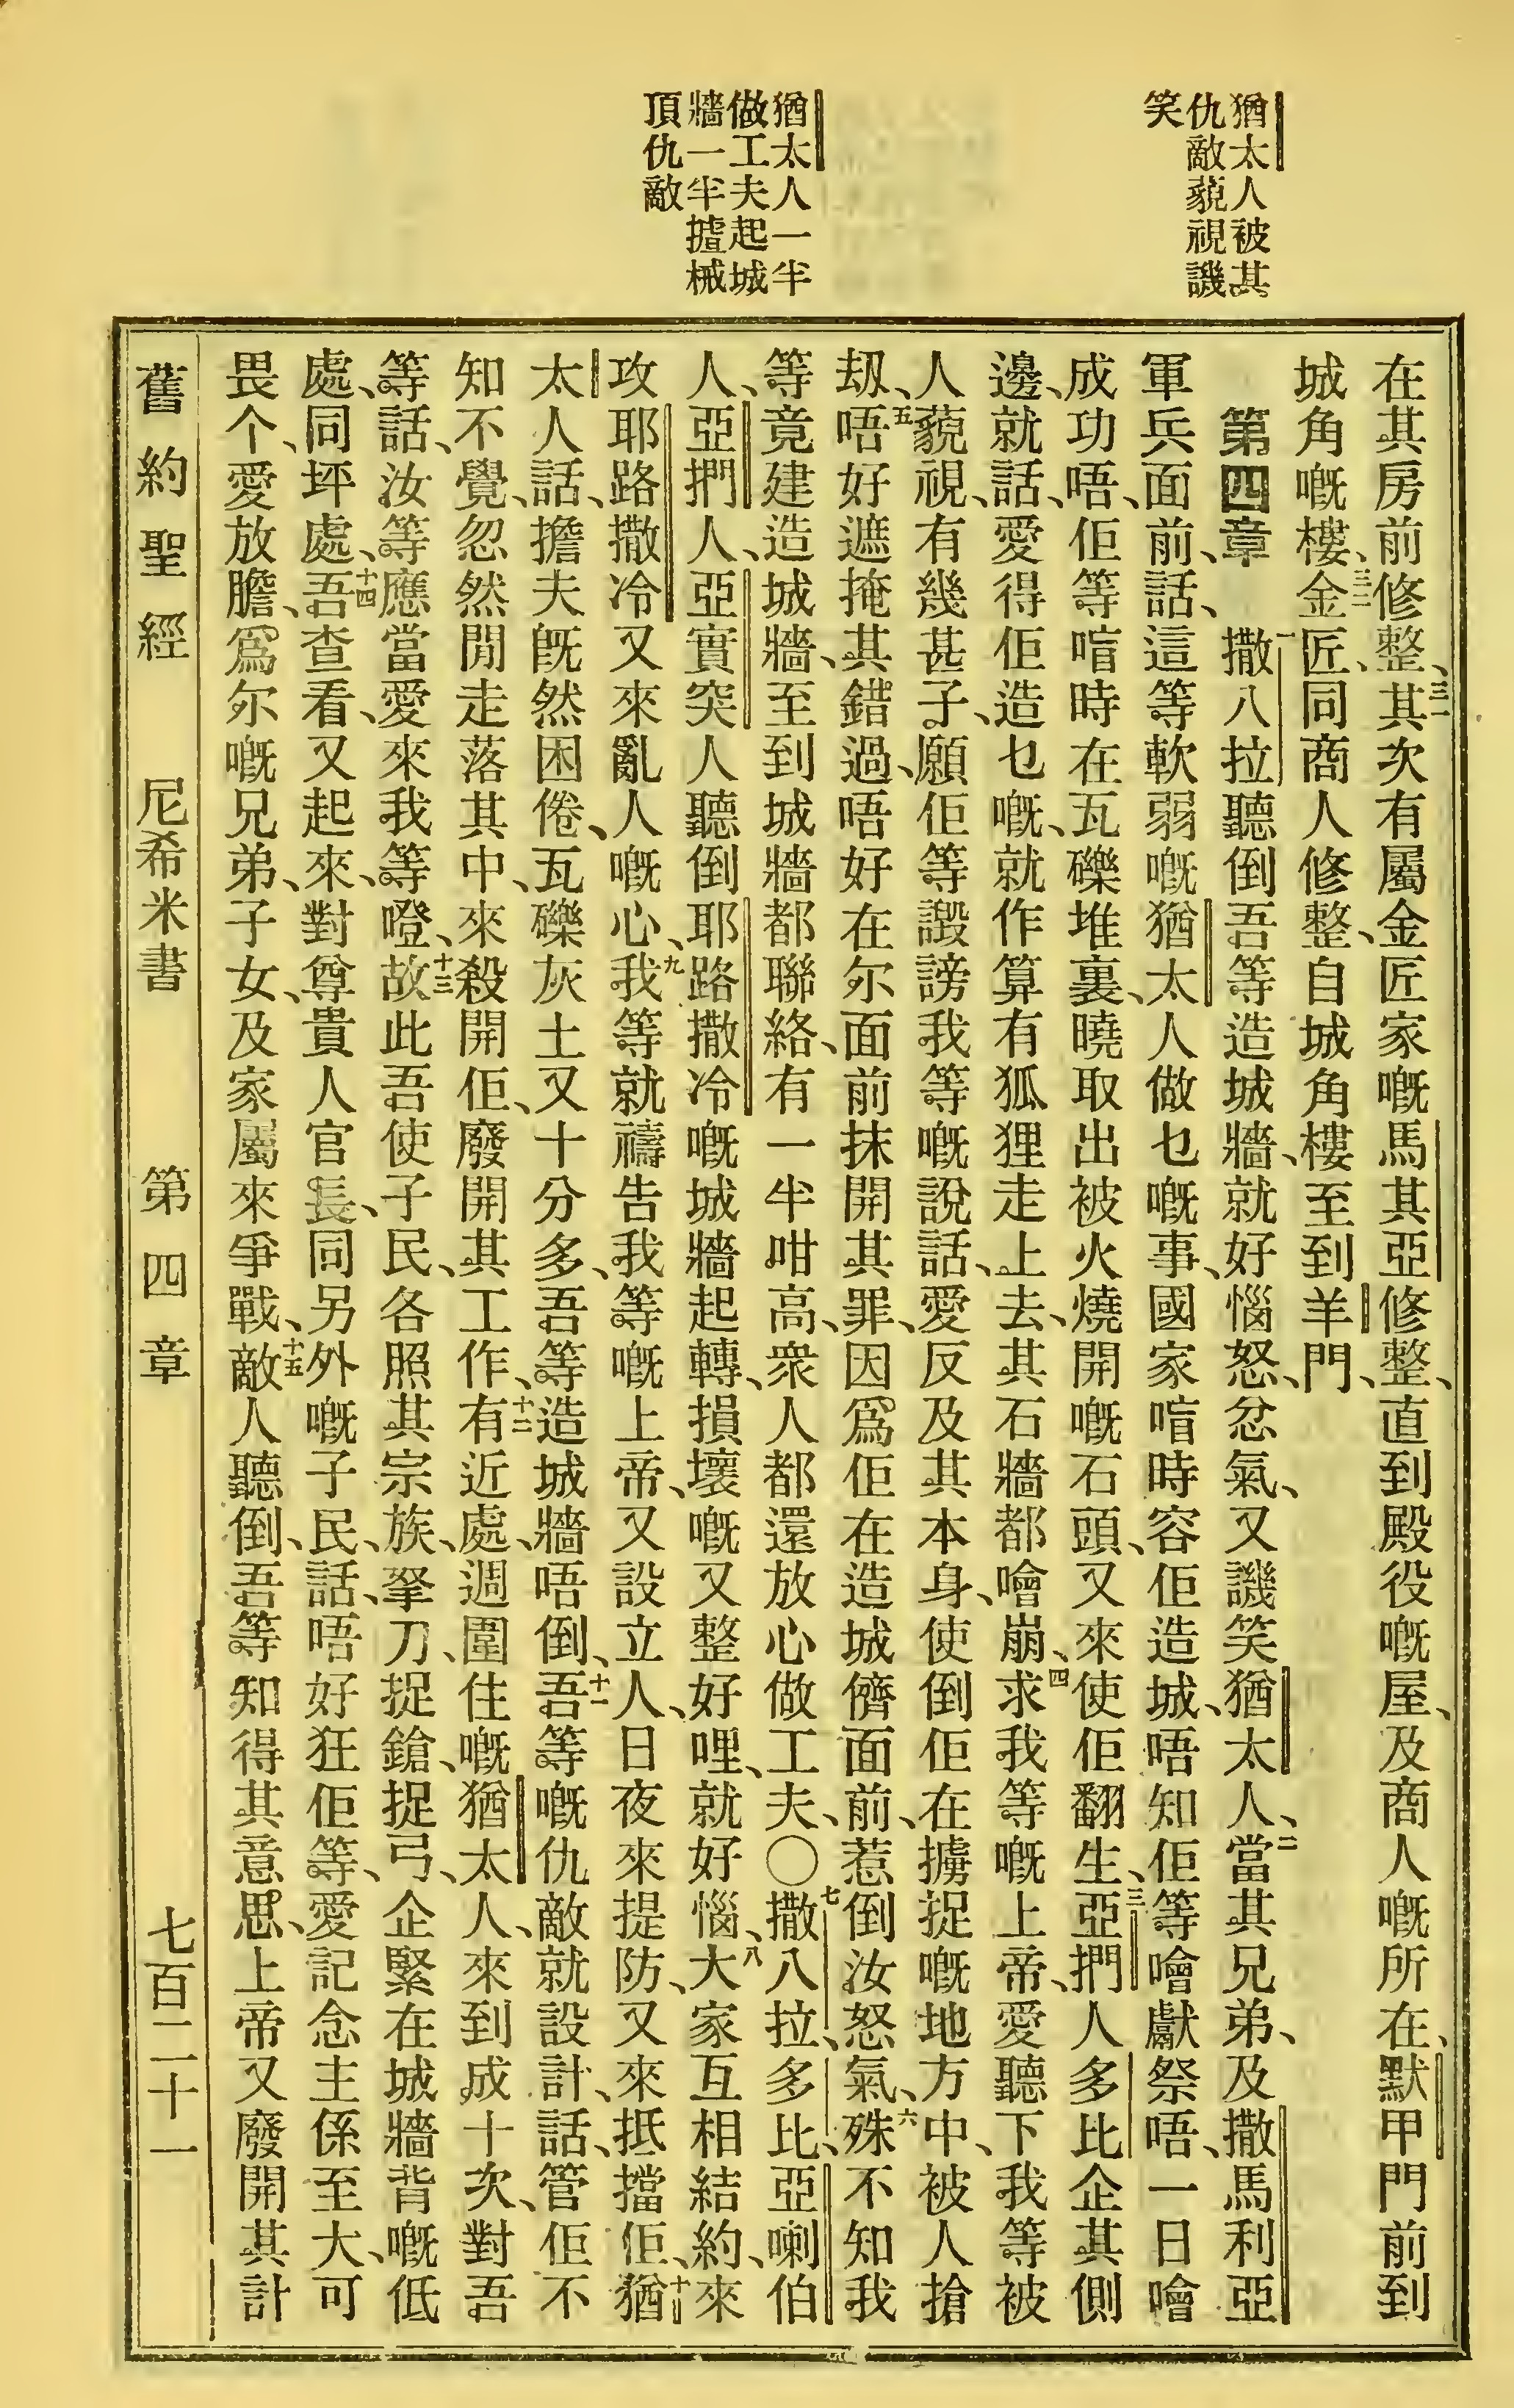 猶太人被其
仇敵藐視譏
笑
猶太人一半
做工夫起城
牆一半揸械
頂仇敵
在其房前修整、三一其次有屬金匠家嘅馬其亞修整、直到殿役嘅屋、及商人嘅所在、默甲門前到
城角嘅樓、三二金匠、同商人修整、自城角樓至到羊門、
第四章 一撒八拉聽倒吾等造城牆、就好惱怒、忿氣、又譏笑猶太人、二當其兄弟、及撒馬利亞
軍兵面前、話、這等軟弱嘅猶太人做乜嘅事、國家唁時容佢造城、唔知佢等噲獻祭唔、一日噲
成功唔、佢等唁時在瓦礫堆裏、曉取出被火燒開嘅石頭、又來使佢翻生、三亞捫人多比企其側
邊、就話、愛得佢造乜嘅、就作算有狐狸走上去、其石牆都噲崩、四求我等嘅上帝、愛聽下我等被
人藐視、有幾甚子、願佢等譭謗我等嘅說話、愛反及其本身、使倒佢在擄捉嘅地方中、被人搶
刼、五唔好遮掩其錯過、唔好在尔面前抹開其罪、因爲佢在造城儕面前、惹倒汝怒氣、六殊不知我
等竟建造城牆、至到城牆都聯絡、有一半咁高、衆人都還放心做工夫、○七撒八拉、多比、亞喇伯
人、亞捫人、亞實突人聽倒耶路撒冷嘅城牆起轉、損壞嘅又整好哩、就好惱、八大家互相結約、來
攻耶路撒冷又來亂人嘅心、九我等就禱告我等嘅上帝、又設立人、日夜來提防、又來抵擋佢、十猶
太人話、擔夫旣然困倦、瓦礫灰土又十分多、吾等造城牆唔倒、十一吾等嘅仇敵就設計、話、管佢不
知不覺、忽然閒走落其中、來殺開佢、廢開其工作、十二有近處、週圍住嘅猶太人、來到成十次、對吾
等話、汝等應當愛來我等噔、十三故此吾使子民、各照其宗族、拏刀、捉鎗、捉弓、企緊在城牆背嘅低
處、同坪處、十四吾查看、又起來、對尊貴人官長、同另外嘅子民、話、唔好狂佢等、愛記念主係至大、可
畏个、愛放膽、爲尔嘅兄弟、子女、及家屬來爭戰、十五敵人聽倒、吾等知得其意思、上帝又廢開其計
舊約聖經 尼希米書 第四章 七百二十一